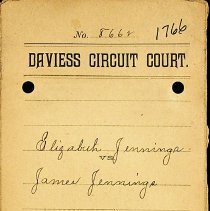 No. 8662 1766
DAVIESS CIRCUIT COURT.
Elizabeth Jennings
VS
James Jennings